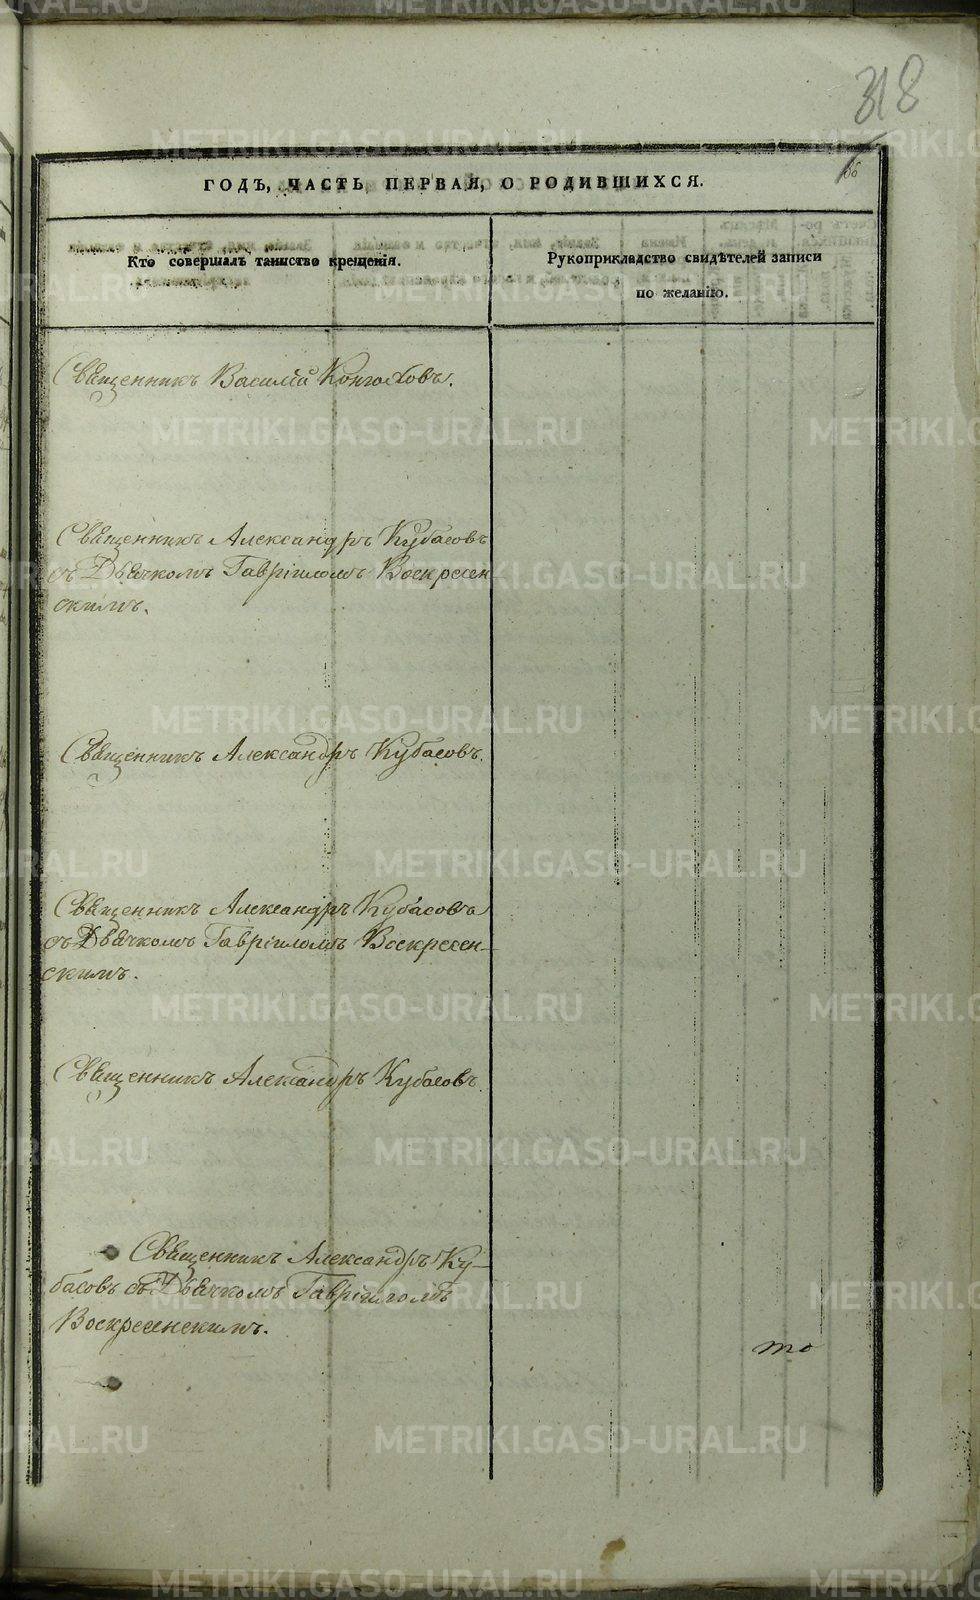 318
ГОДЪ, ЧАСТЬ ПЕРВАЯ, О РОДИВШИХСЯ.
Кто совершалъ таинство крещенія.
Рукоприкладство свидѣтелей записи
по желанію.
Священникъ Василій
Священникъ Александръ Кубасовъ
съ Дьячкомъ Гавріиломъ Воскресен-
скимъ.
Священникъ Александръ Кубасовъ.
Священникъ Александръ Кубасовъ
съ Дьячкомъ Гавріиломъ Воскресен-
скимъ.
Священникъ Александръ Кубасовъ.
Священникъ Александръ Ку-
басовъ съ Дьячкомъ Гавріиломъ
Воскресенскимъ.
то
METRIKI.GASO-URAL.RU